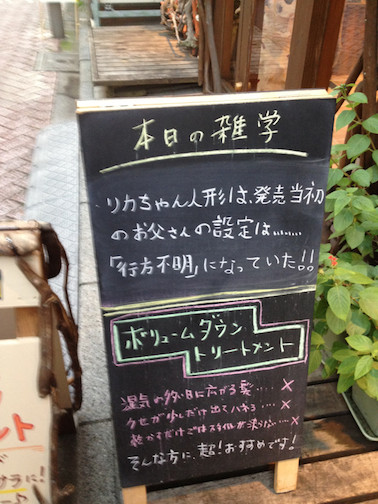 本日の雑学
リカちゃん人形は、発売当初
のお父さんの設定は………
「行方不明」になっていた!!
ボリュームダウン
トリートメント
湿気の多い日に広がる髪‥‥ ×
クセが少しだけ出てハネる‥‥ ×
乾かすだけではスタイルが決らない‥‥ ×
そんな方に、超!おすすめです!